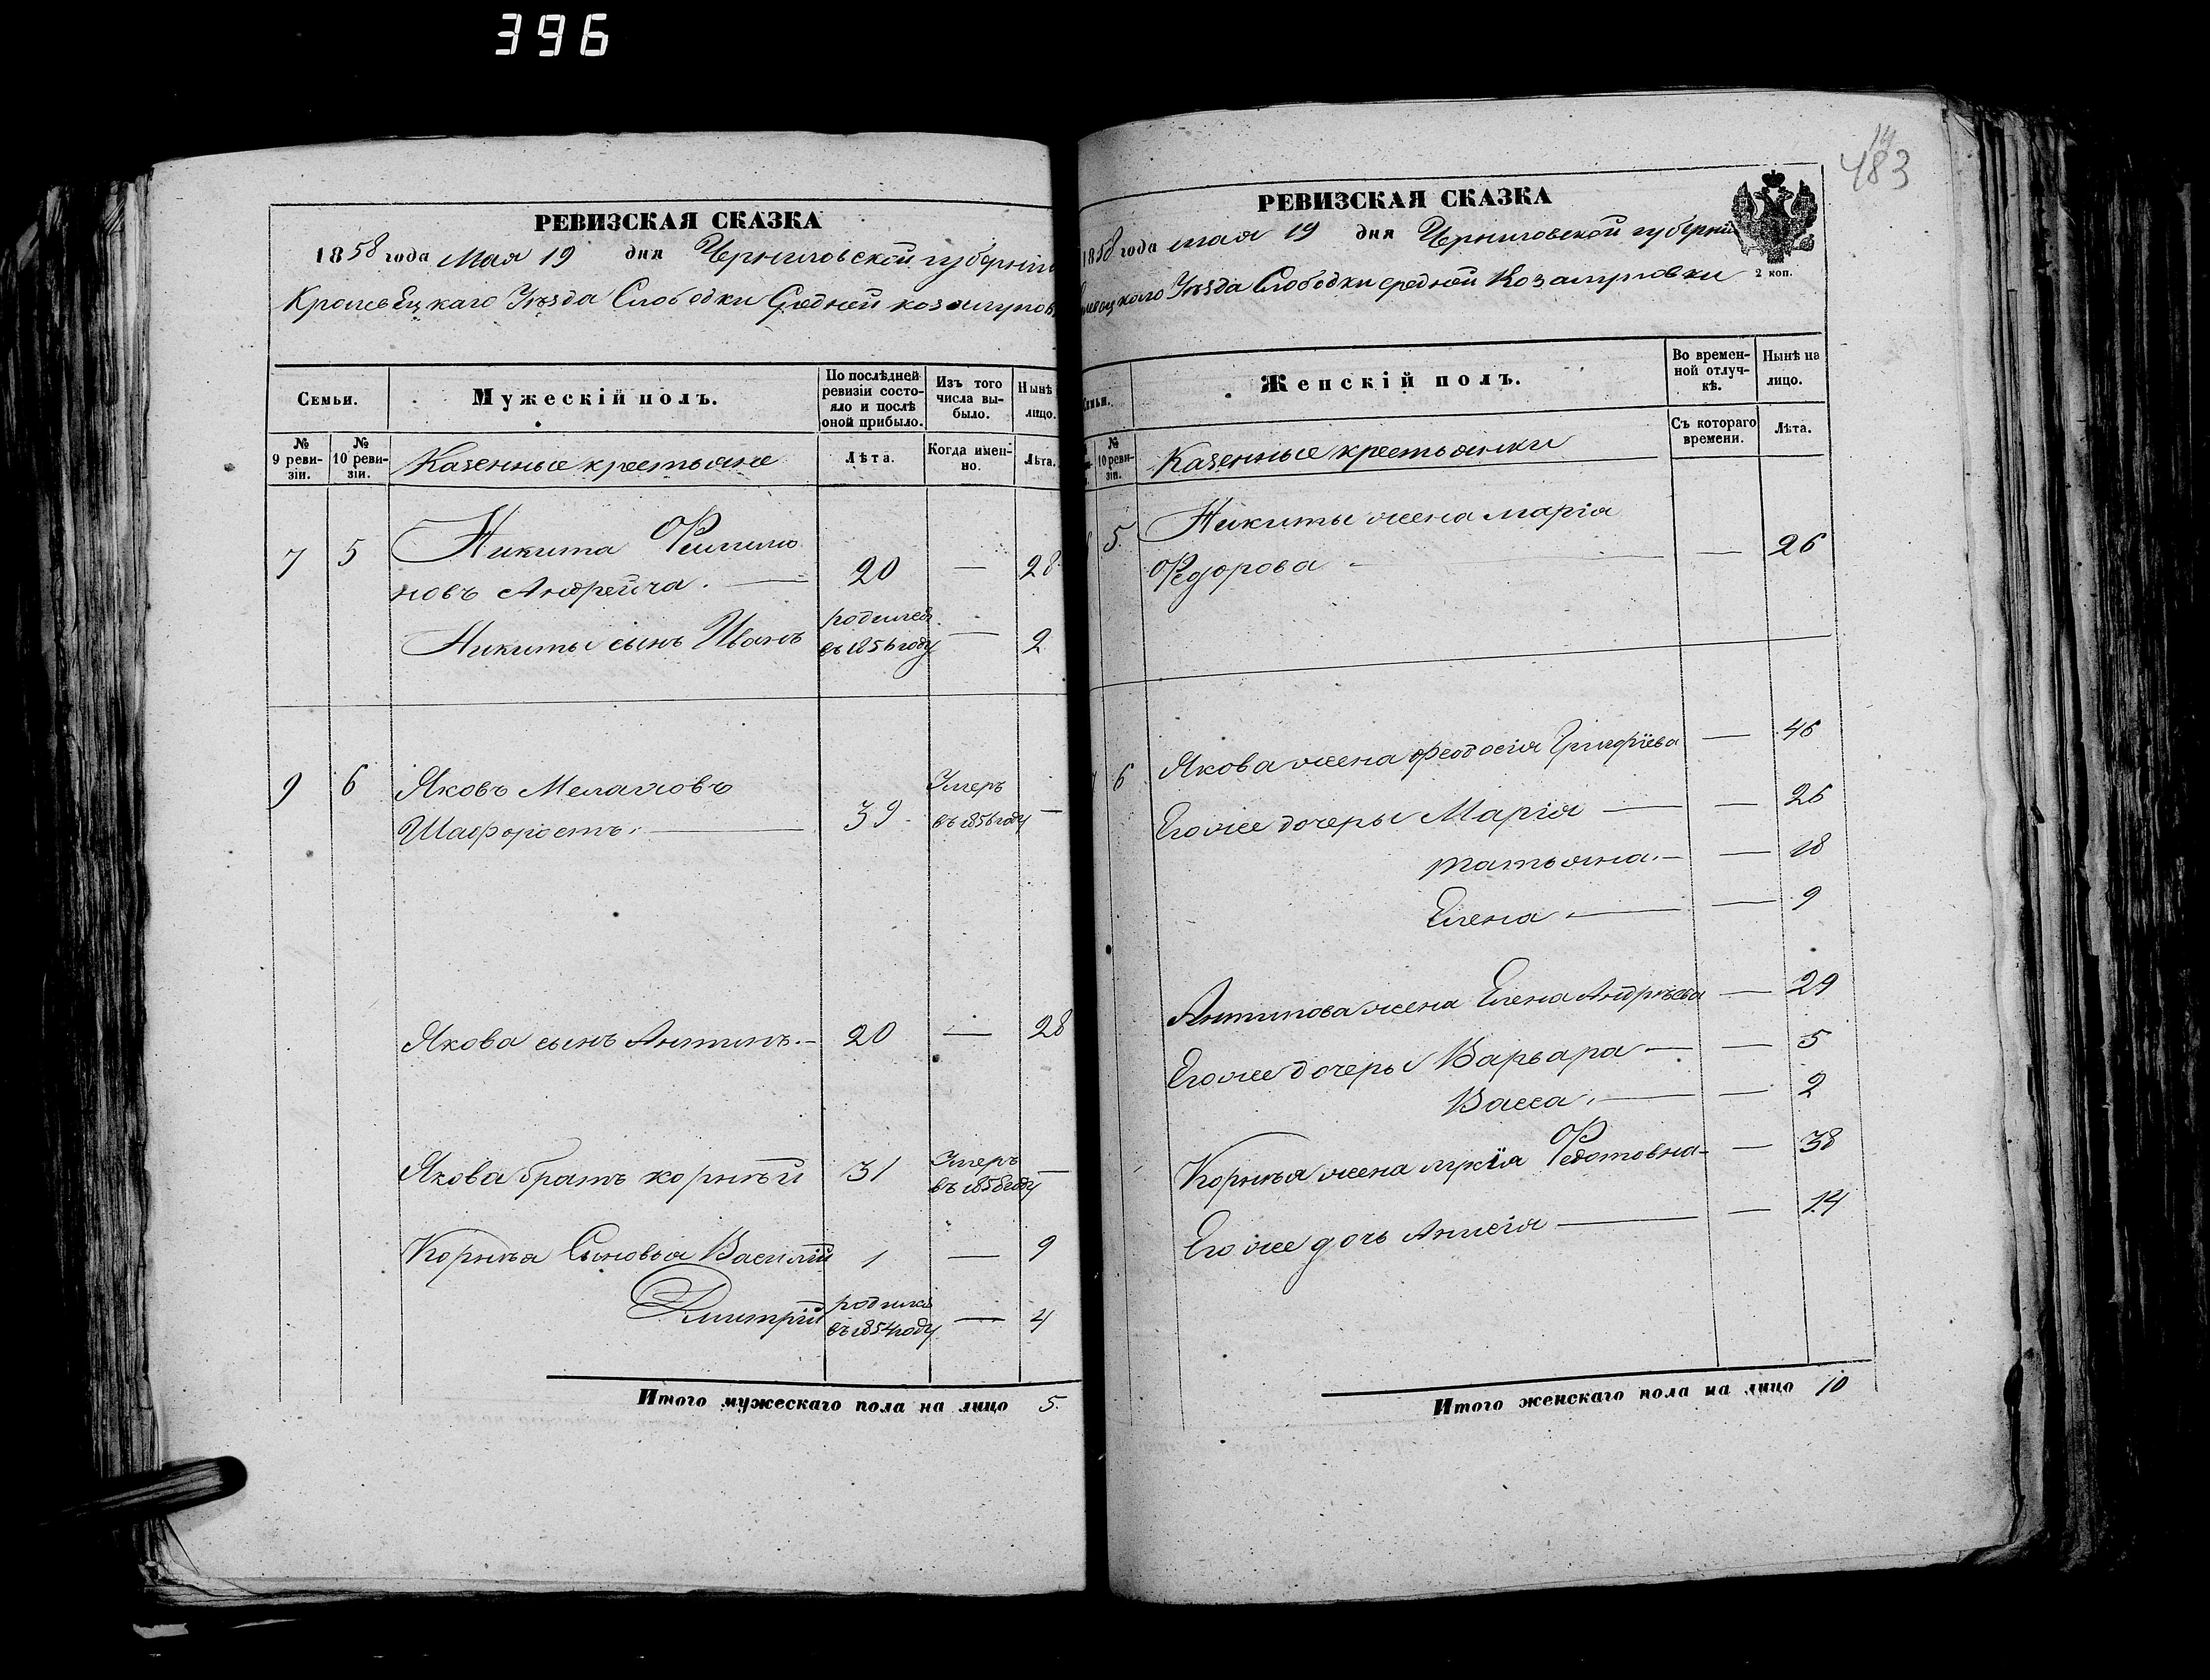 396
РЕВИЗСКАЯ СКАЗКА
1858 года Мая 19 дня Черниговской губерніи
Кролевецкаго Уѣзда Слободки Средней
Семьи. Мужескій полъ. По послѣдней ревизіи состояло и послѣ оной прибыло. Изъ того числа выбыло. Нынѣ лицо.
№ 9 ревизіи. № 10 ревизіи. Казенные крестьяне Лѣта. Когда именно. Лѣта.
7 5 Никита Филимо
новъ Андрейча. — 20 — 28
Никиты сынъ Иванъ родился въ 1856 году — 2
9 6 Яковъ
Шафоростъ. — 39 Умеръ въ 1856 году —
Якова сынъ Антипъ. — 20 — 28
Якова братъ Корнѣй 31 Умеръ въ 1858 году —
Корнѣя Сыновья Василій 1 — 9
Дмитрій родился въ 1854 году — 4
Итого мужескаго пола на лицо 5.
14
483
РЕВИЗСКАЯ СКАЗКА
1858 года мая 19 дня Черниговской губерніи
Уѣзда Слободки средней
2 коп.
Женскій полъ. Во временной отлучкѣ. Нынѣ на лицо.
№ 10 ревизіи. Казенные крестьянки Съ котораго времени. Лѣта.
5. Никиты жена Марія
Федорова — — 26
6 Якова жена Феодосія Григоріева — 46
Его же дочеры Марія — — 26
Татьяна. — — 18
Елена — — 9
Антипова жена Елена Андрѣева — 29
Его же дочеры Варвара — — 5
Васса. — — 2
Корнѣя жена Федотовна — — 38
Его же дочь Анисія — — 14
Итого женскаго пола на лицо 10